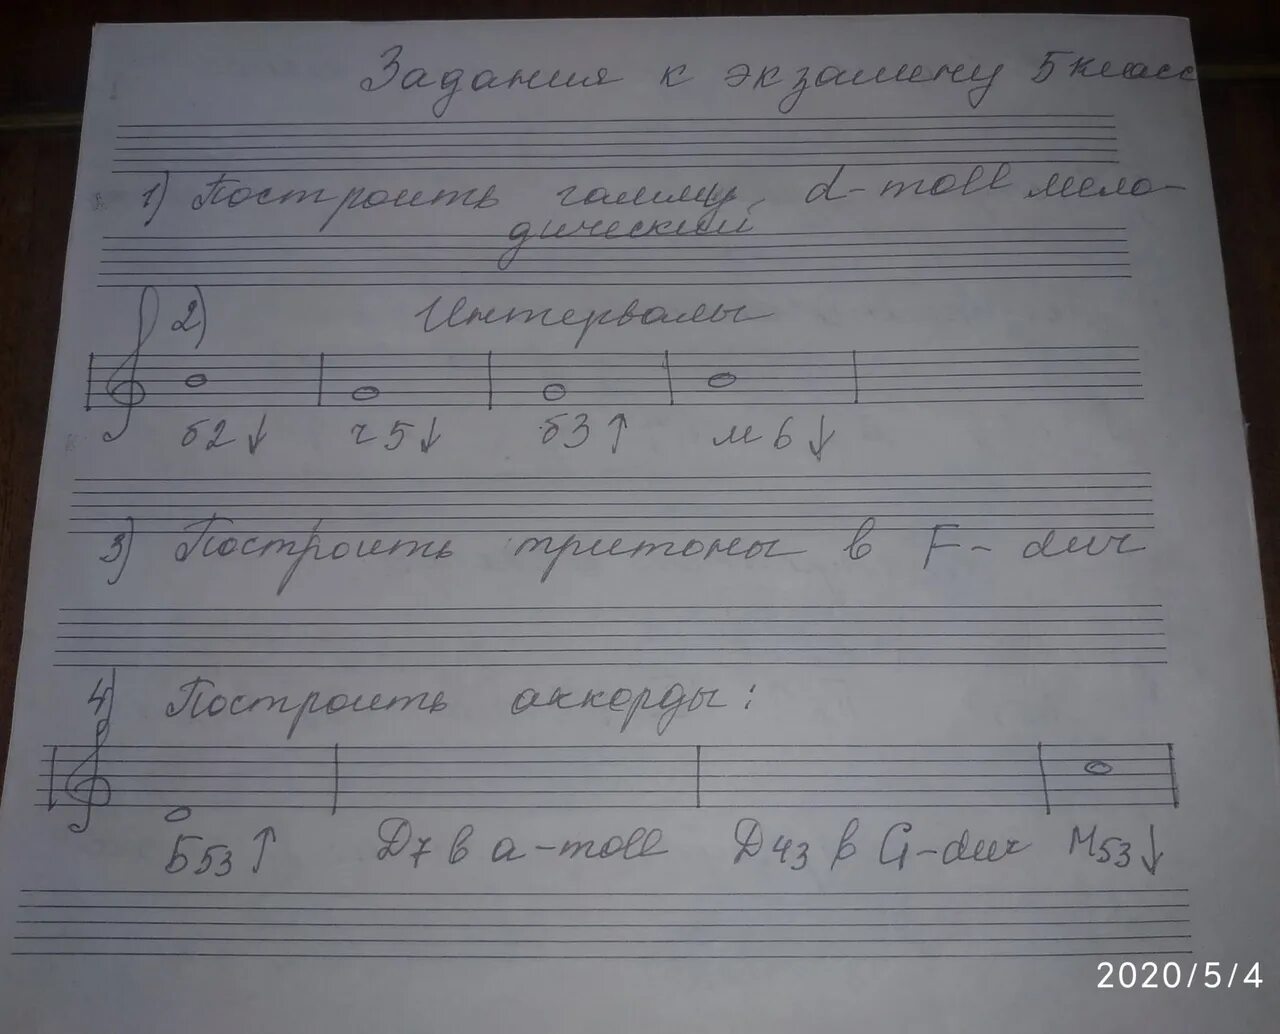 Задания к экзамену 5 класс
1) Построить гамму d-moll мело-
дический
2) Интервалы
б2↓ ч5↓ б3↑ м6↓
3) Построить тритоны в F-dur
4) Построить аккорды:
Б53↑ D7 в a-moll D43 в G-dur М53↓
2020/5/4